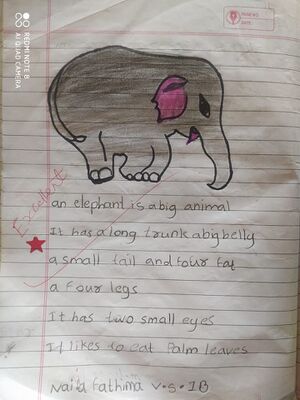 REDMI NOTE 8
AI QUAD CAMERA
PAGE NO
DATE
Excellent
an elephant is a big animal
It has a long trunk a big belly
a small tail and four fat
a four legs
It has two small eyes
It likes to eat Palm leaves
Fathima V.S. 1B